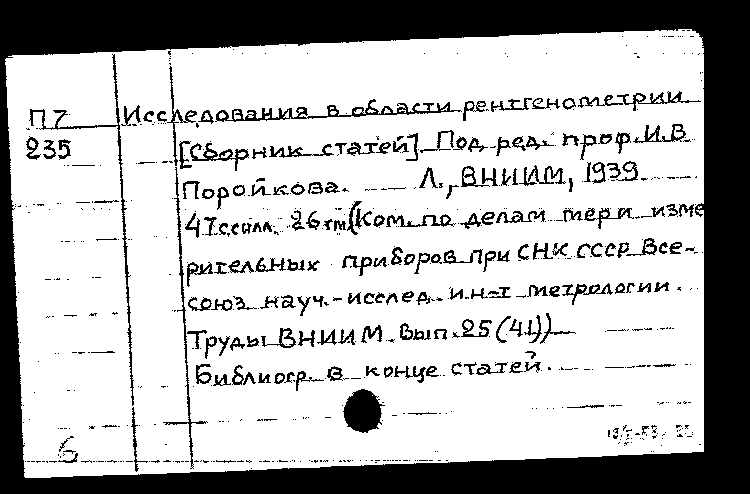 П7 Исследования в области рентгенометрии.
235 [Сборник статей]. Под ред. проф. И.В
Поройкова. Л., ВНИИМ, 1939.
47 с. с илл. 26 см (Ком. по делам мер и изме
рительных приборов при СНК СССР Все-
союз. науч.-исслед. ин-т метрологии.
Труды ВНИИМ. Вып. 25 (41))
Библиогр. в конце статей.
6